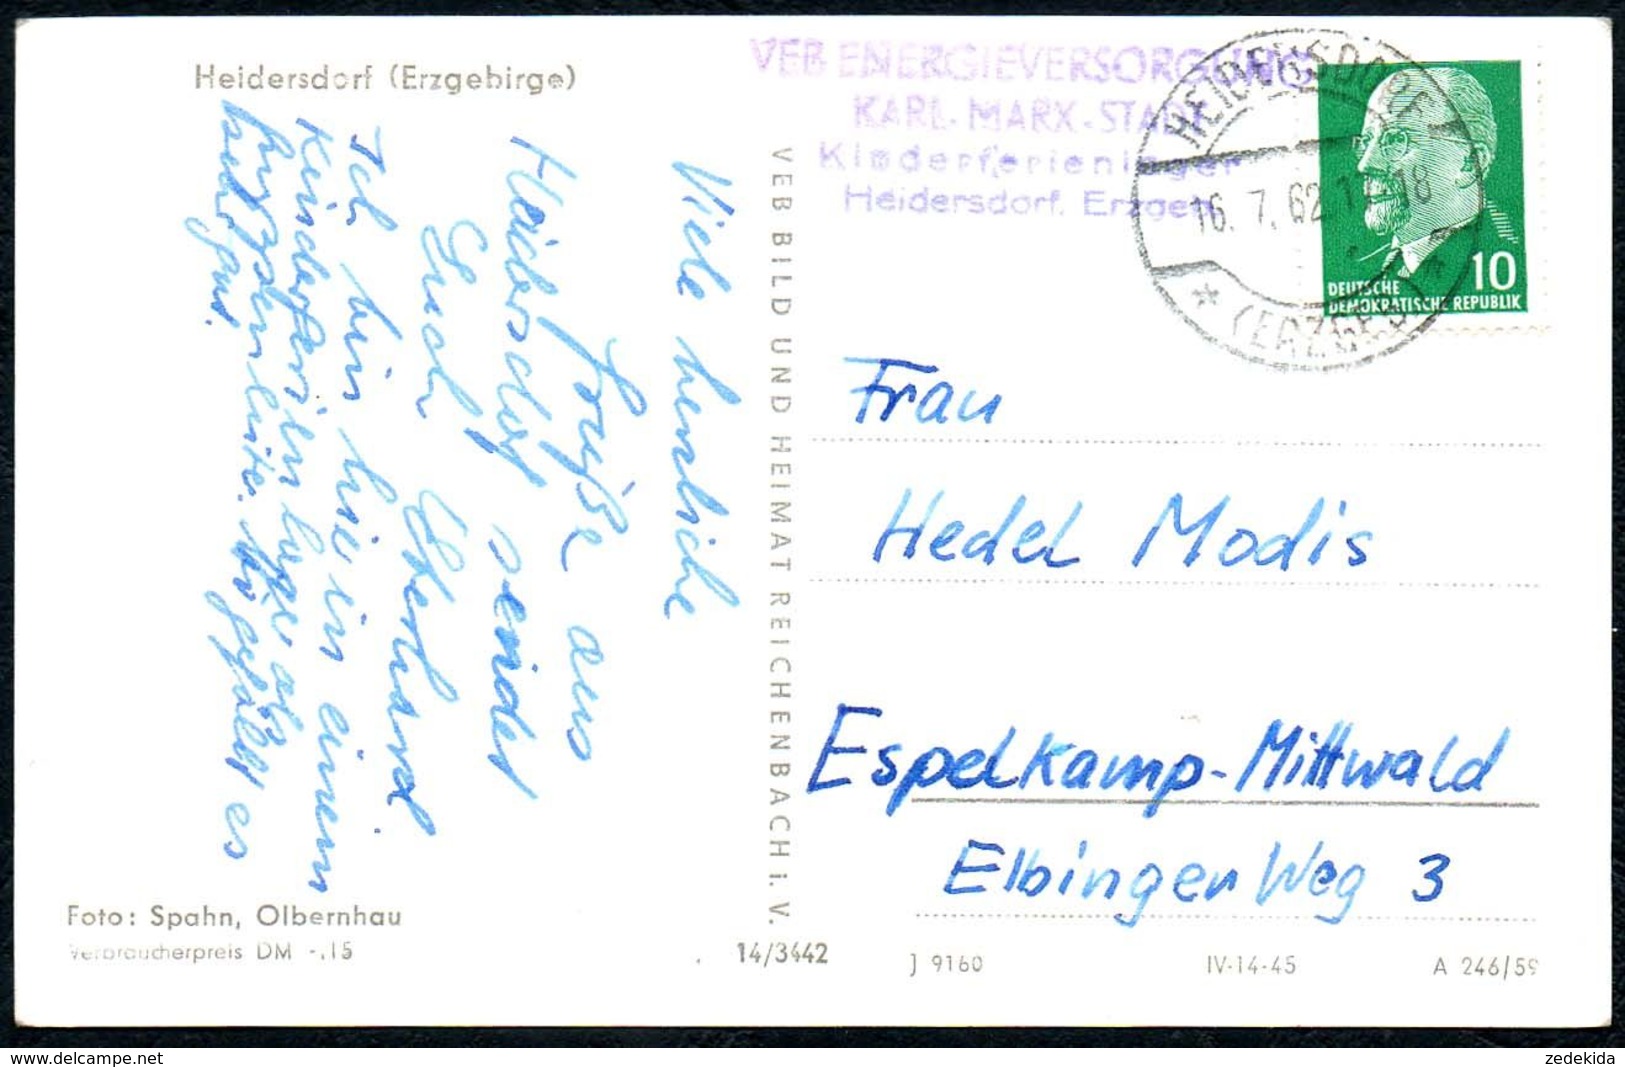 Heidersdorf (Erzgebirge)
VEB ENERGIEVERSORGUNG
KARL-MARX-STADT
Kinderferienlager
Heidersdorf. Erzgeb.
HEIDERSDORF
16. 7. 62
-18
(ERZGEB)
10
DEUTSCHE
DEMOKRATISCHE REPUBLIK
Viele herzliche
Grüße aus
Heidersdorf sendet
Euch Eberhard
Ich bin hier in einem
Kinderferienlager als
Gruppenleiter. Mir gefällt es
sehr gut.
VEB BILD UND HEIMAT REICHENBACH i. V.
Frau
Hedel Modis
Espelkamp-Mittwald
Elbinger Weg 3
Foto: Spahn, Olbernhau
Verbraucherpreis DM -,15
14/3442
J 9160
IV-14-45
A 246/59
www.delcampe.net
zedekida